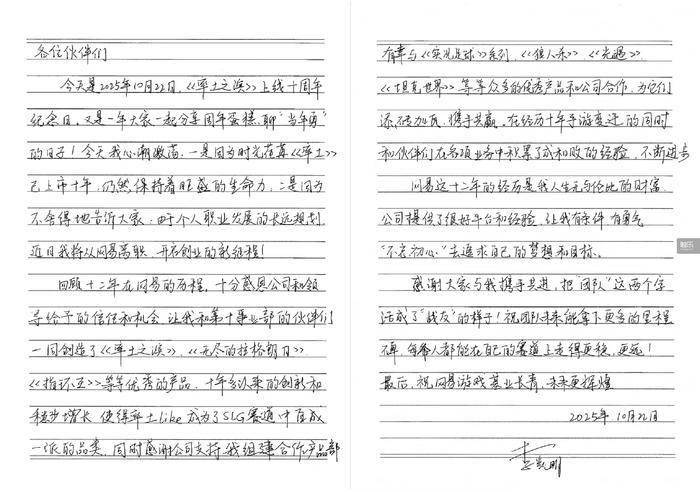 各位伙伴们
今天是2025年10月22日,《率土之滨》上线十周年
纪念日,又是一年大家一起分享周年蛋糕,聊"当年勇"
的日子!今天我心潮澎湃,一是因为时光荏苒《率土》
已上市十年,仍然保持着旺盛的生命力,二是因为
不舍得地告诉大家:由于个人职业发展的长远规划,
近日我将从网易离职,开启创业的新征程!
回顾十二年在网易的历程,十分感恩公司和领
导给予的信任和机会,让我和第十事业部的伙伴们
一同创造了《率土之滨》,《无尽的拉格朗日》
《指环王》等等优秀的产品,十年多以来的创新和
稳步增长,使得率土Like成为了SLG赛道中自成
一派的品类,同时感谢公司支持我组建合作产品部
有幸与《实况足球》系列,《狼人杀》,《光遇》
《坦克世界》等等众多的优秀产品和公司合作,为它们
添砖加瓦,携手共赢,在经历十年手游变迁的同时
和伙伴们在各项业务中积累了成和败的经验,不断进步
网易这十二年的经历是我人生无与伦比的财富
公司提供了很好平台和经验,让我有条件 有勇气
"不忘初心"去追求自己的梦想和目标。
感谢大家与我携手共进,把"团队"这两个字
活成了"战友"的样子!祝团队未来能拿下更多的里程
碑,每个人都能在自己的赛道上走得更稳,更远!
最后,祝网易游戏基业长青,未来更辉煌
2025年10月22日
李凯明
触乐